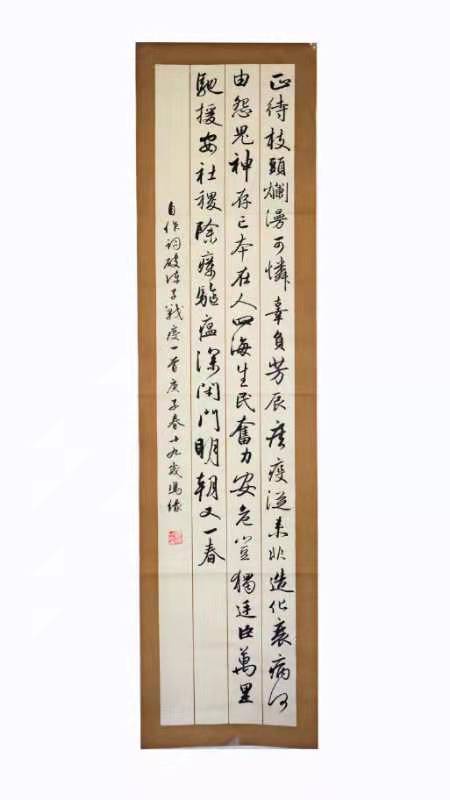 正待枝頭爛漫可憐辜負芳辰疾疫從來非造化衰病何
由怨鬼神存亡本在人四海生民奮力安危豈獨廷臣萬里
馳援安社稷除瘴驅瘟深閉門明朝又一春
自作詞破陣子戰疫一首庚子春十九歲